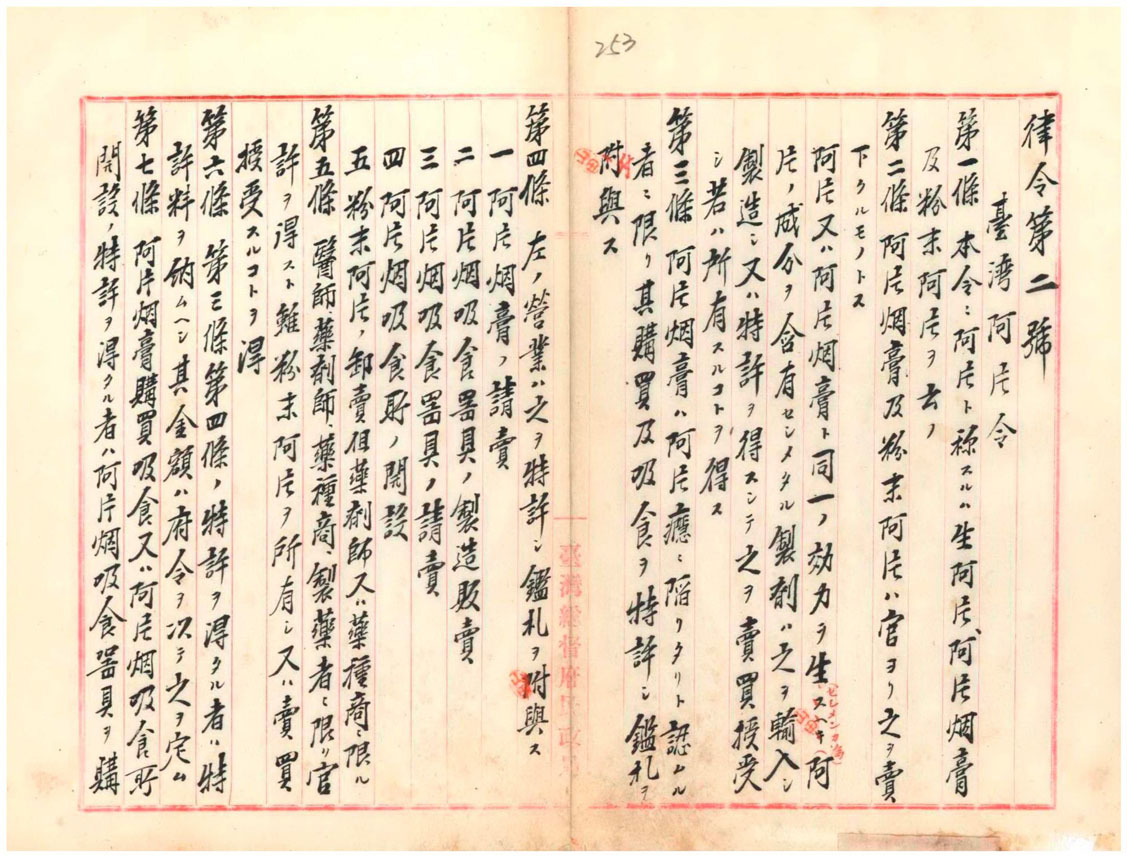 253
律令第二號
臺湾阿片令
第一條 本令ニ阿片ト稱スルハ生阿片、阿片烟膏
及粉末阿片ヲ云フ
第二條 阿片烟膏及粉末阿片ハ官ヨリ之ヲ賣
下クルモノトス
阿片又ハ阿片烟膏ト同一ノ効力ヲ生スヘキ阿
片ノ成分ヲ含有セシメタル製劑ハ之ヲ輸入シ
製造シ又ハ特許ヲ得スシテ之ヲ賣買授受
シ若ハ所有スルコトヲ得ス
第三條 阿片烟膏ハ阿片癮ニ陷リタリト認ムル
者ニ限リ其購買及吸食ヲ特許シ鑑札ヲ
附與ス
第四條 左ノ營業ハ之ヲ特許シ鑑札ヲ附與ス
一 阿片烟膏ノ請賣
二 阿片烟吸食器具ノ製造販賣
三 阿片烟吸食器具ノ請賣
四 阿片烟吸食所ノ開設
五 粉末阿片ノ卸賣但藥劑師又ハ藥種商ニ限ル
第五條 醫師藥劑師、藥種商、製藥者ニ限リ官
許ヲ得スト雖粉末阿片ヲ所有シ又ハ賣買
授受スルコトヲ得
第六條 第三條第四條ノ特許ヲ得タル者ハ特
許料ヲ納ムヘシ其金額ハ府令ヲ以テ之ヲ定ム
第七條 阿片烟膏購買吸食又ハ阿片烟吸食所
開設ノ特許ヲ得タル者ハ阿片烟吸食器具ヲ購
臺灣總督府民政局